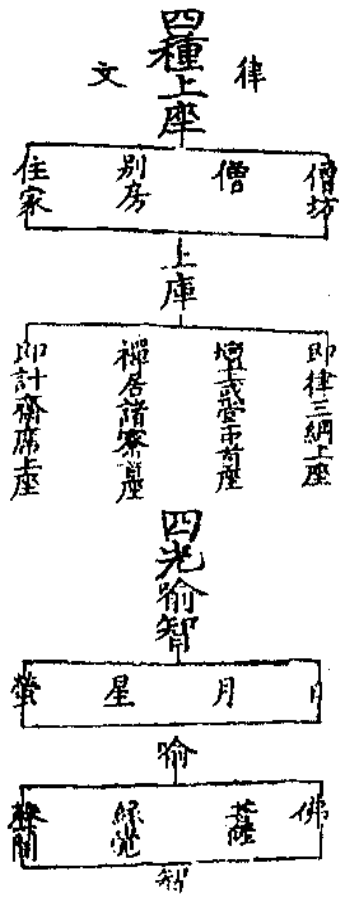 四種上座
律文
僧坊
僧
別房
住家
上座
即律三綱上座
禪居諸寮首座
即計齋席上座
四光喻智
日
月
星
螢
喻
佛
菩薩
緣覺
聲聞
智